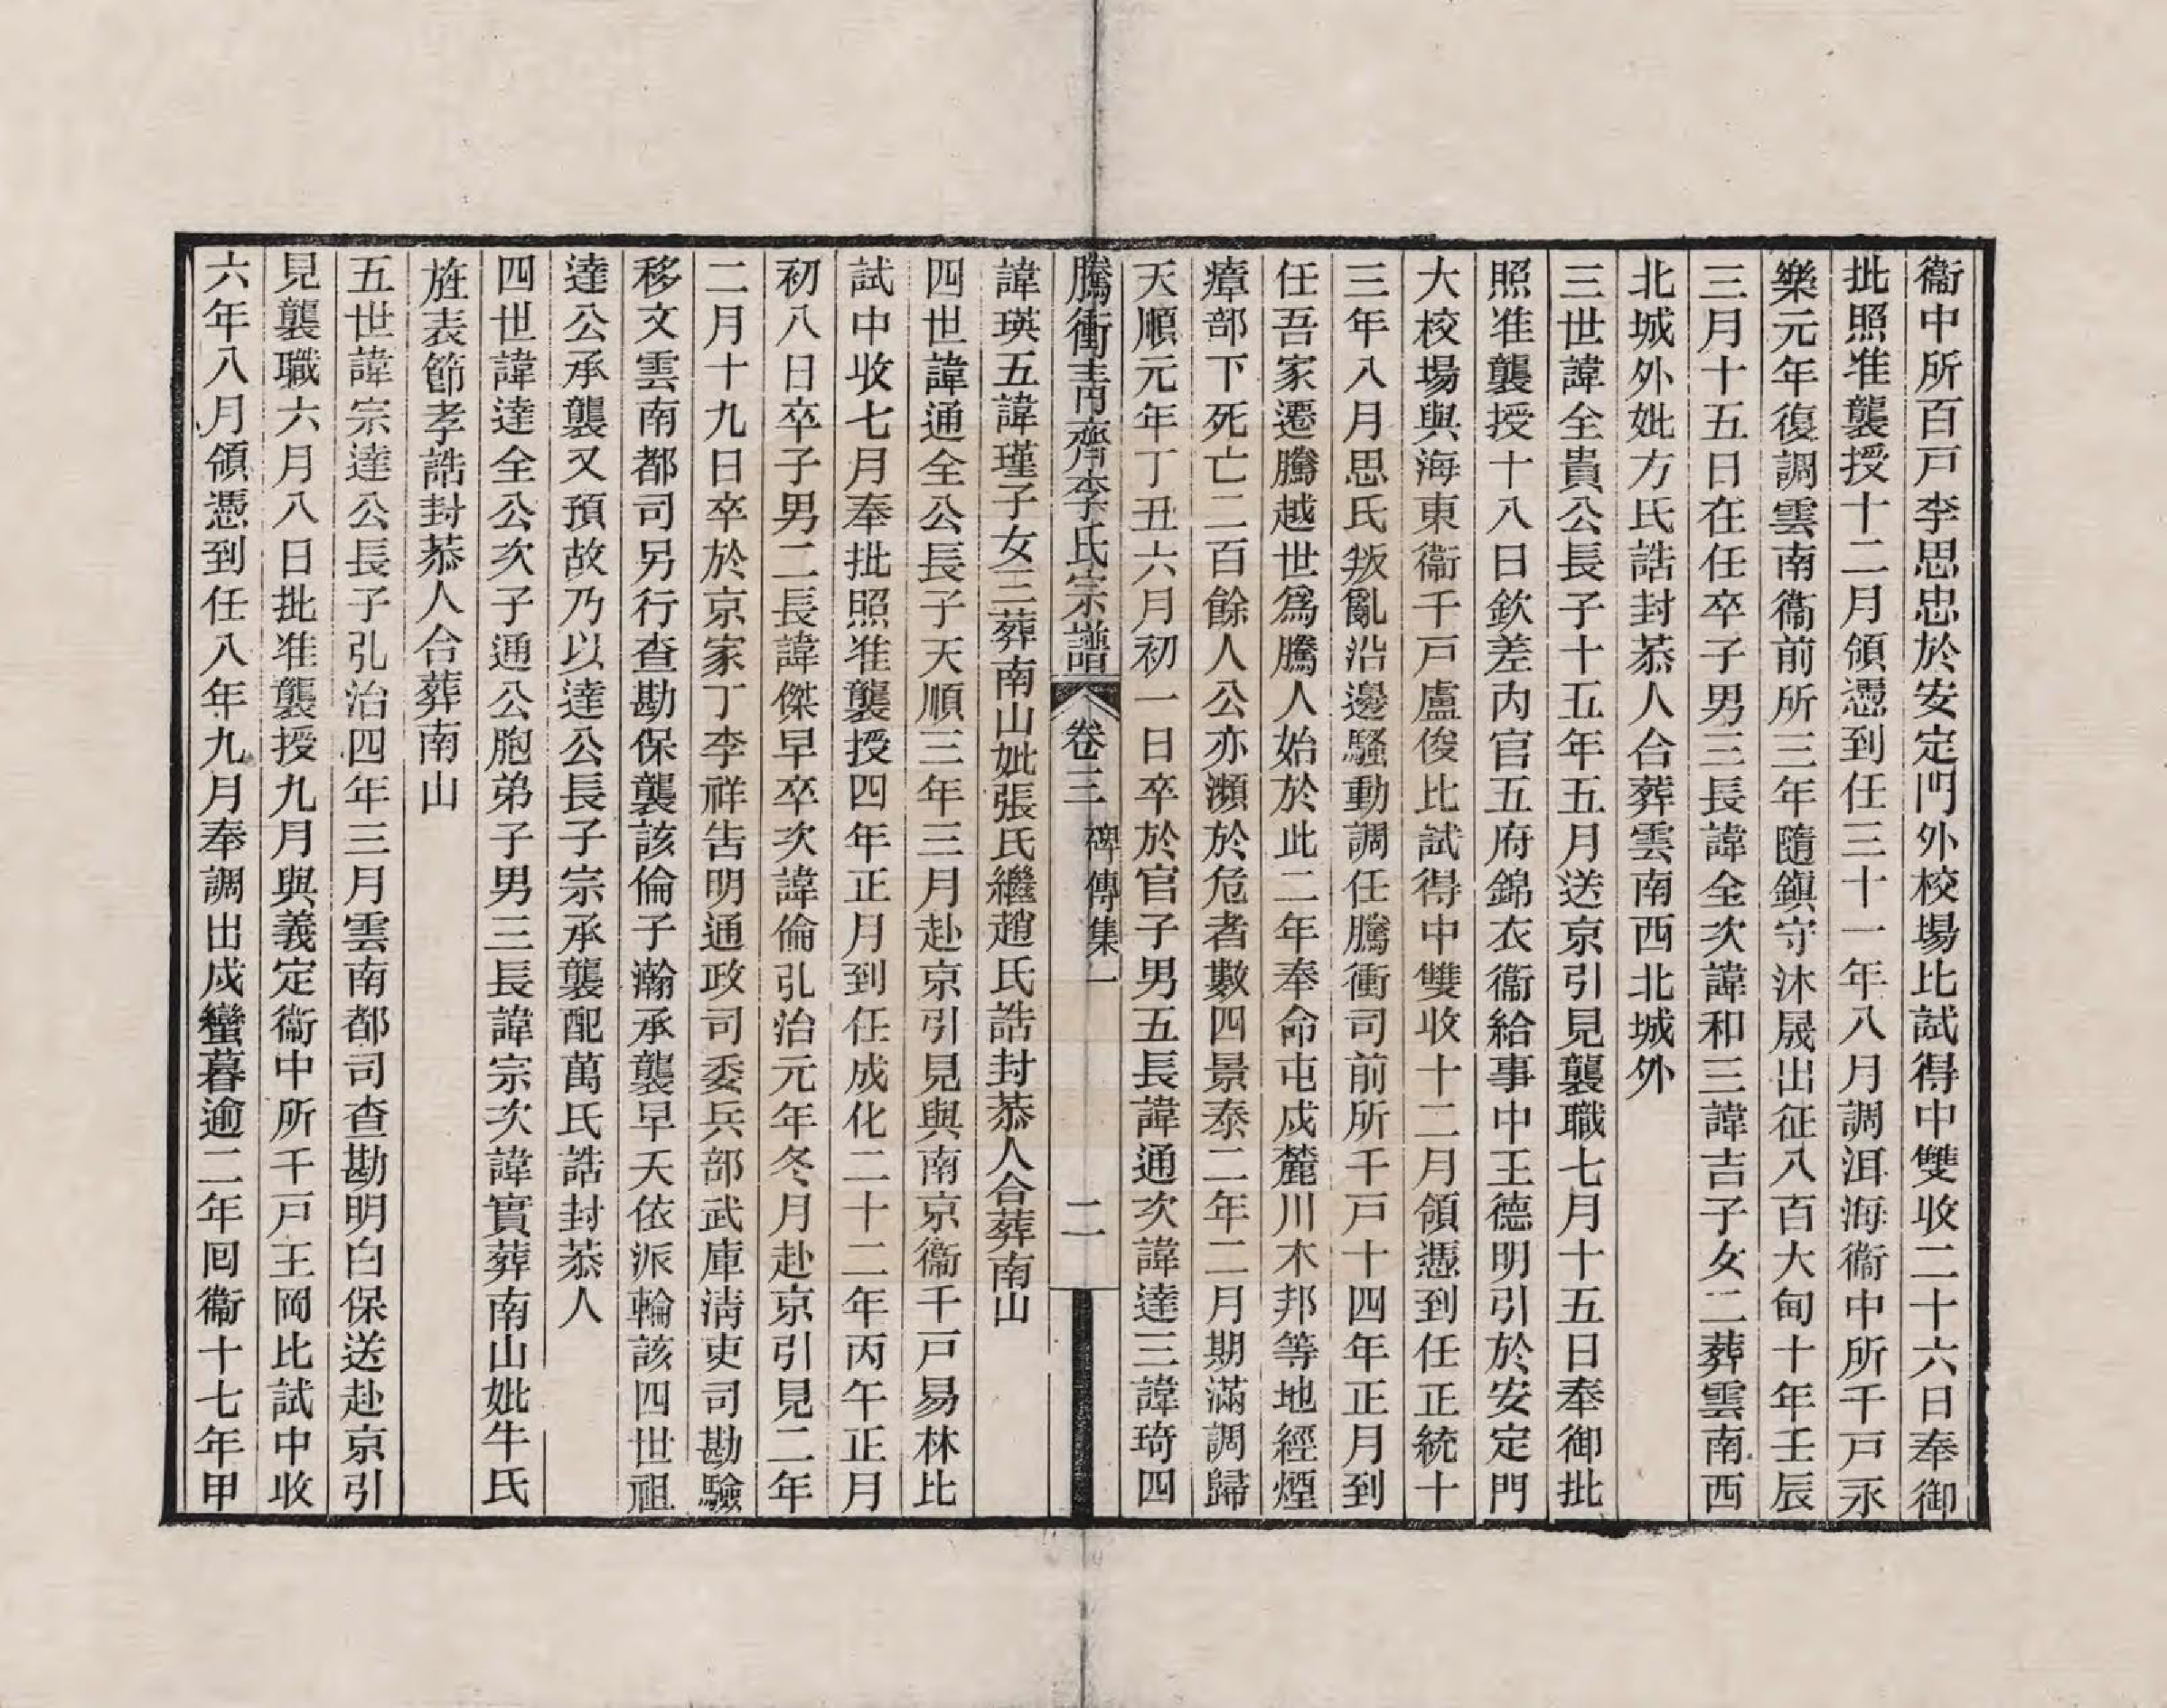 衞中所百戸李思忠於安定門外校場比試得中雙收二十六日奉御
批照准襲授十二月領憑到任三十一年八月調洱海衞中所千戸永
樂元年復調雲南衞前所三年隨鎭守沐晟出征八百大甸十年壬辰
三月十五日在任卒子男三長諱全次諱和三諱吉子女二葬雲南西
北城外妣方氏誥封恭人合葬雲南西北城外
三世諱全貴公長子十五年五月送京引見襲職七月十五日奉御批
照准襲授十八日欽差内官五府錦衣衞給事中王德明引於安定門
大校場與海東衞千戸盧俊比試得中雙收十二月領憑到任正統十
三年八月思氏叛亂沿邊騷動調任騰衝司前所千戸十四年正月到
任吾家遷騰越世爲騰人始於此二年奉命屯戍麓川木邦等地經煙
瘴部下死亡二百餘人公亦瀕於危者數四景泰二年二月期滿調歸
天順元年丁丑六月初一日卒於官子男五長諱通次諱達三諱琦四
騰衝靑齊李氏宗譜 卷三 碑傳集一 二
諱瑛五諱瑾子女三葬南山妣張氏繼趙氏誥封恭人合葬南山
四世諱通全公長子天順三年三月赴京引見與南京衞千戸易林比
試中收七月奉批照准襲授四年正月到任成化二十二年丙午正月
初八日卒子男二長諱傑早卒次諱倫弘治元年冬月赴京引見二年
二月十九日卒於京家丁李祥告明通政司委兵部武庫淸吏司勘驗
移文雲南都司另行查勘保襲該倫子瀚承襲早夭依派輪該四世祖
達公承襲又預故乃以達公長子宗承襲配萬氏誥封恭人
四世諱達全公次子通公胞弟子男三長諱宗次諱實葬南山妣牛氏
旌表節孝誥封恭人合葬南山
五世諱宗達公長子弘治四年三月雲南都司查勘明白保送赴京引
見襲職六月八日批准襲授九月與義定衞中所千戸王岡比試中收
六年八月領憑到任八年九月奉調出戍蠻暮逾二年囘衞十七年甲